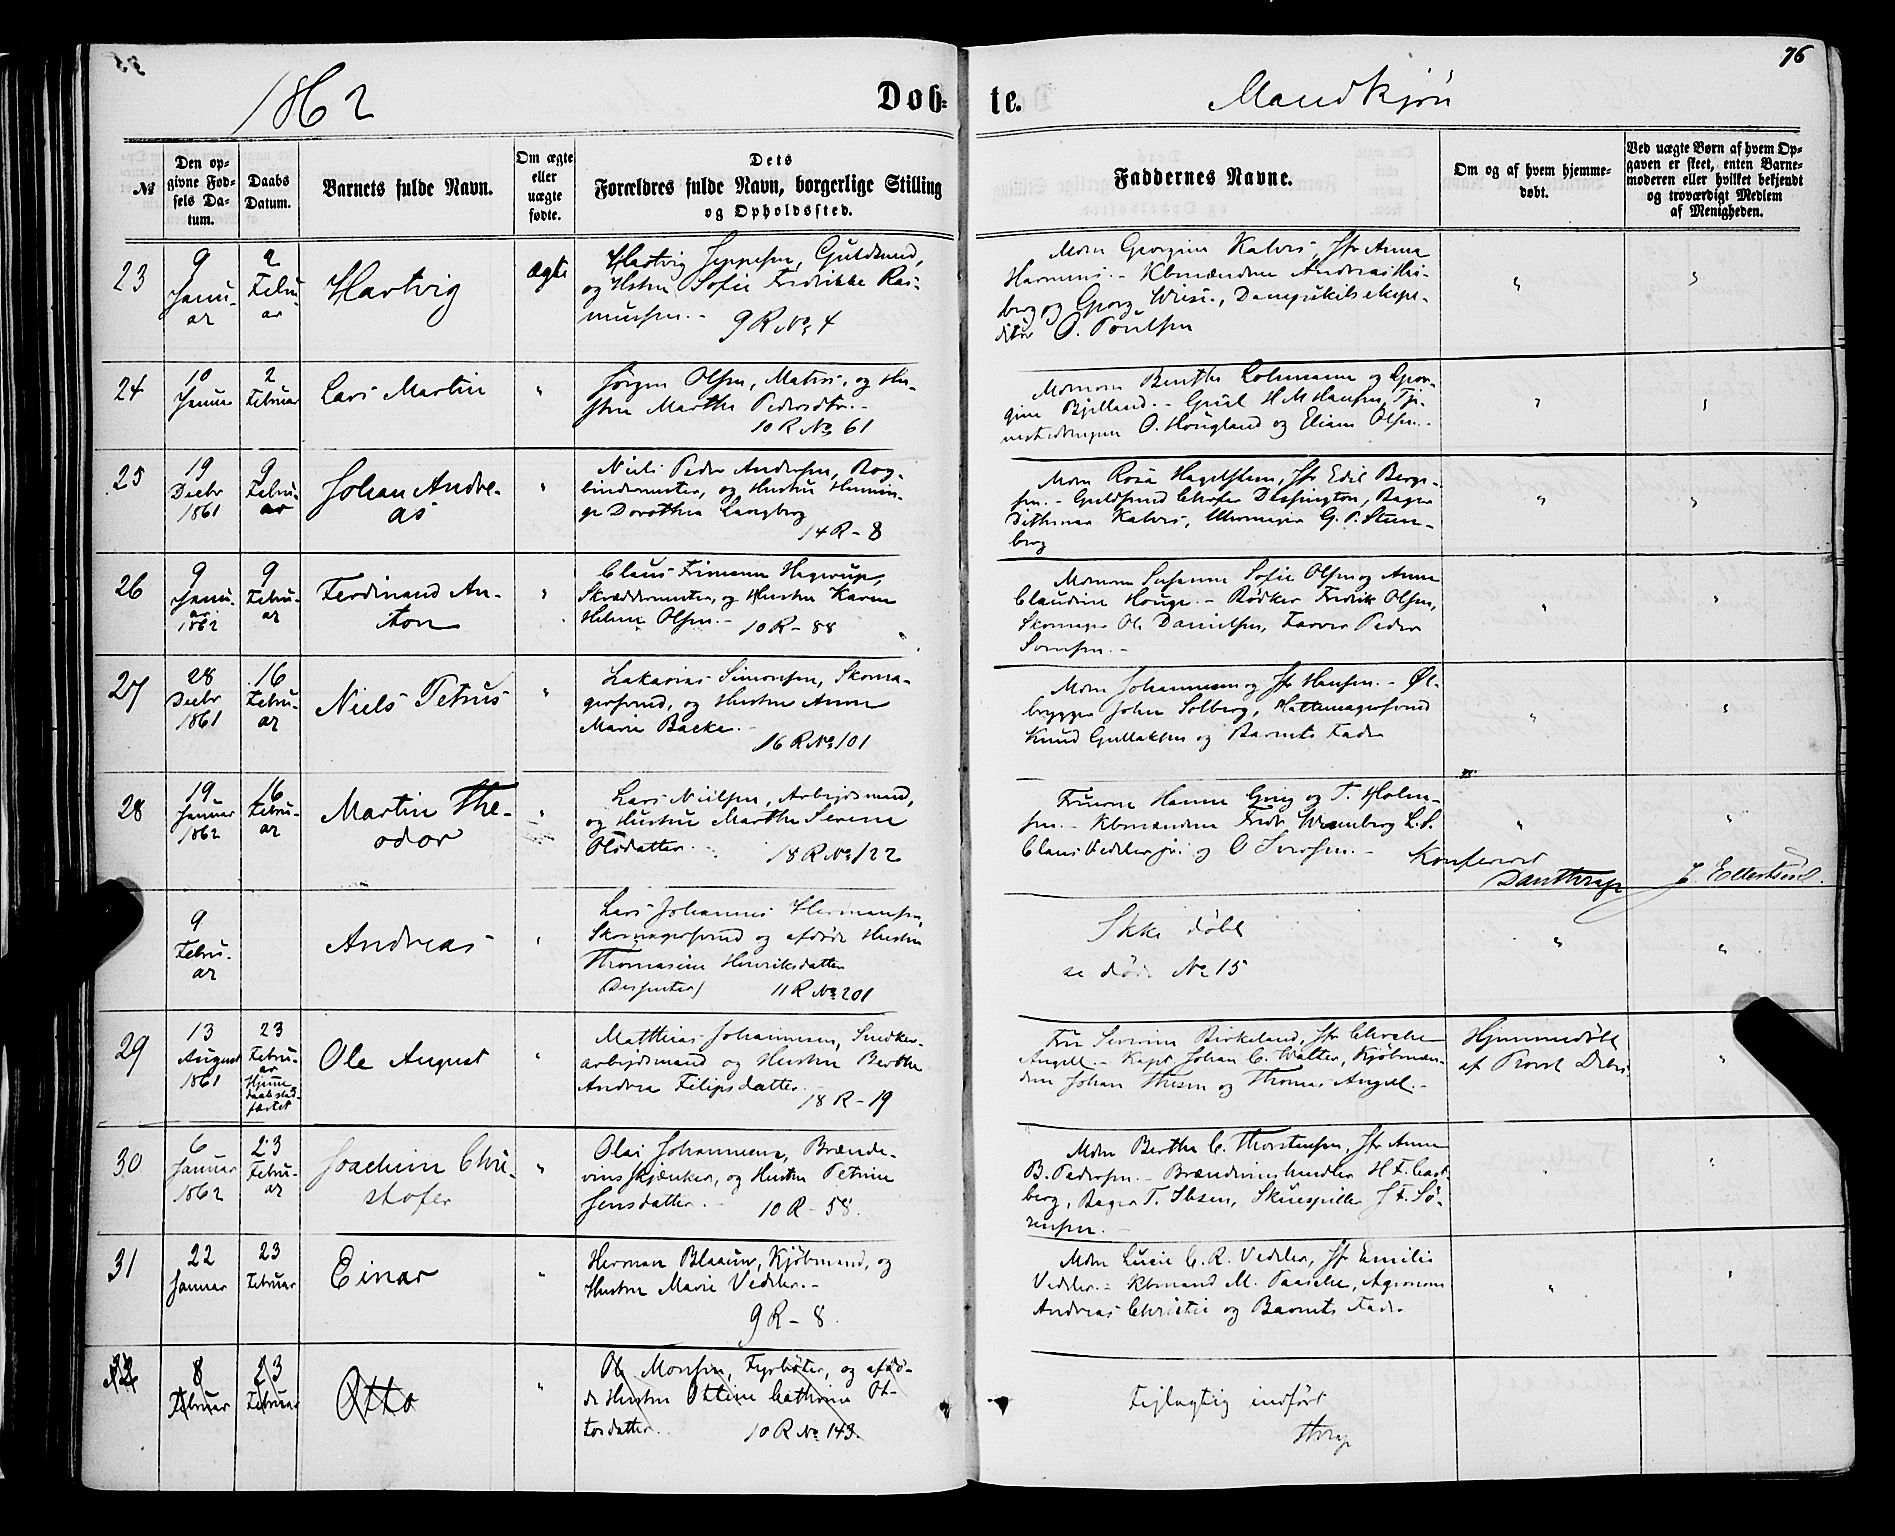 76
1862
Døb-
te.
Mandkjøn
No
Den op-
givne Fød-
sels Da-
tum.
Daabs
Datum.
Barnets fulde Navn.
Om ægte
eller
uægte
fødte.
Dets
Forældres fulde Navn, borgerlige Stilling
og Opholdssted.
Faddernes Navne.
Om og af hvem hjemme-
døbt.
Ved uægte Børn af hvem Op-
gaven er skeet, enten Barne-
moderen eller hvilket bekjendt
og troværdigt Medlem
af Menigheden.
23
9
Janu-
ar
2
Febru-
ar
Hartvig
ægte
Hartvig Jeppesen, Guldsmed,
og Hstru Sofie Fredrikke Ras-
mussen.-
9 R No 4
Mdm Georgine Kalvs, Jfr Anna
Kbmændene Andreas
berg og Georg Wiese, Dampskibsexpe-
ditør O. Poulsen
24
10
Januar
2
Februar
Lars Martin
Jørgen Olsen, Matros, og Hu-
stru Marthe Pedersdtr.-
10 R No 61
Mdmm Benthe Lohmann og Geor-
gine Bjelland.- H M Hansen, Tje-
nestedrengene O. Hougland og Elias Olsen.-
25
19
Decbr
1861
9
Febru-
ar
Johan Andre-
as
Niels Peder Andersen, Bog-
bindermester, og Hustru Hennin-
ge Dorothea Langberg
14 R - 8
Mdm Rosa Hagelsteen, Jfr Edle Berge-
sen.- Guldsmed Dessington, Bager
Dithmar Kalvs, Uhrmager G. P. Steen-
berg
26
9
Janu-
ar
1862
9
Febru-
ar
Ferdinand An-
ton
Claus Fimann Hagerup,
Skræddermester, og Hustru Karen
Helene Olsen.-
10 R - 88
Mdmm Susanne Sofie Olsen og Anna
Claudine Houge.- Bødker Fredrik Olsen,
Skomager Ole Danielsen, Farver Peder
Sørensen.-
27
28
Decbr
1861
16
Febru-
ar
Niels Petrus
Zakarias Simonsen, Skoma-
gersvend, og Hustru Anne
Marie Backe.-
16 R No 101
Mdm Johannesen og Jfr Hansen.- Øl-
brygger John Solberg, Hattemagersvend
Knud Gullaksen og Barnets Fader
28
19
Januar
1862
16
Febru-
ar
Martin The-
odor
Lars Nielsen, Arbejdsmand,
og Hustru Marthe Serene
Olsdatter.
18 R No 122
Fruerne Hanne Grieg og T. Holm-
sen.- Kbmændene Fredr Wennberg L. S.
Claus Vedeler jr. og O Sversen.-
Konfereret
Danthrap
J. Ellertsen
9
Febru-
ar
Andreas
Lars Johannes Hermansen
Skomagersvend og afdøde Hustru
Thomasine Henriksdatter
11 R No 201
Ikke døbt
se døde No 15
29
13
August
1861
23
Febru-
ar
Hjemme
daab stad-
fæstet
Ole August
Matthias Johannesen, Snedker-
arbejdsmand og Hustru Berthe
Andrea Filipsdatter.-
18 R - 19
Fru Severine Birkeland, Jfr
Angell.- Kapt. Johan C. Walter, Kjøbmæn-
dene Johan Thesen og Thomas Angell.-
Hjemmedøbt
af Provst
30
6
Januar
1862
23
Febru-
ar
Joachim Chri-
stofer
Olai Johannesen, Brænde-
vinsskjænker, og Hustru Petrine
Jensdatter.-
10 R - 58.
Mdm Berthe C. Thorstensen, Jfr Anne
B. Pedersen.- Brændevinshandler H. F. Cast-
berg, Bager T. Ibsen, Skuespiller J. F. Sö-
rensen.-
31
22
Januar
23
Februar
Einar
Herman Blaauw, Kjøbmand, og
Hustru Marie Vedeler.-
9 R - 8.
Mdm Lucie C. R. Vedeler, Jfr Emilie
Vedeler.- Kbmand M. Paasche, Agronom
Andreas Christie og Barnets Fader
32
8
Februar
23
Februar
Otto
Ole Monsen, Fyrbøter, og afdø-
de Hustru Ottine Cathrine Ot-
tosdatter.
10 R No 143.
Fejlagtig indført